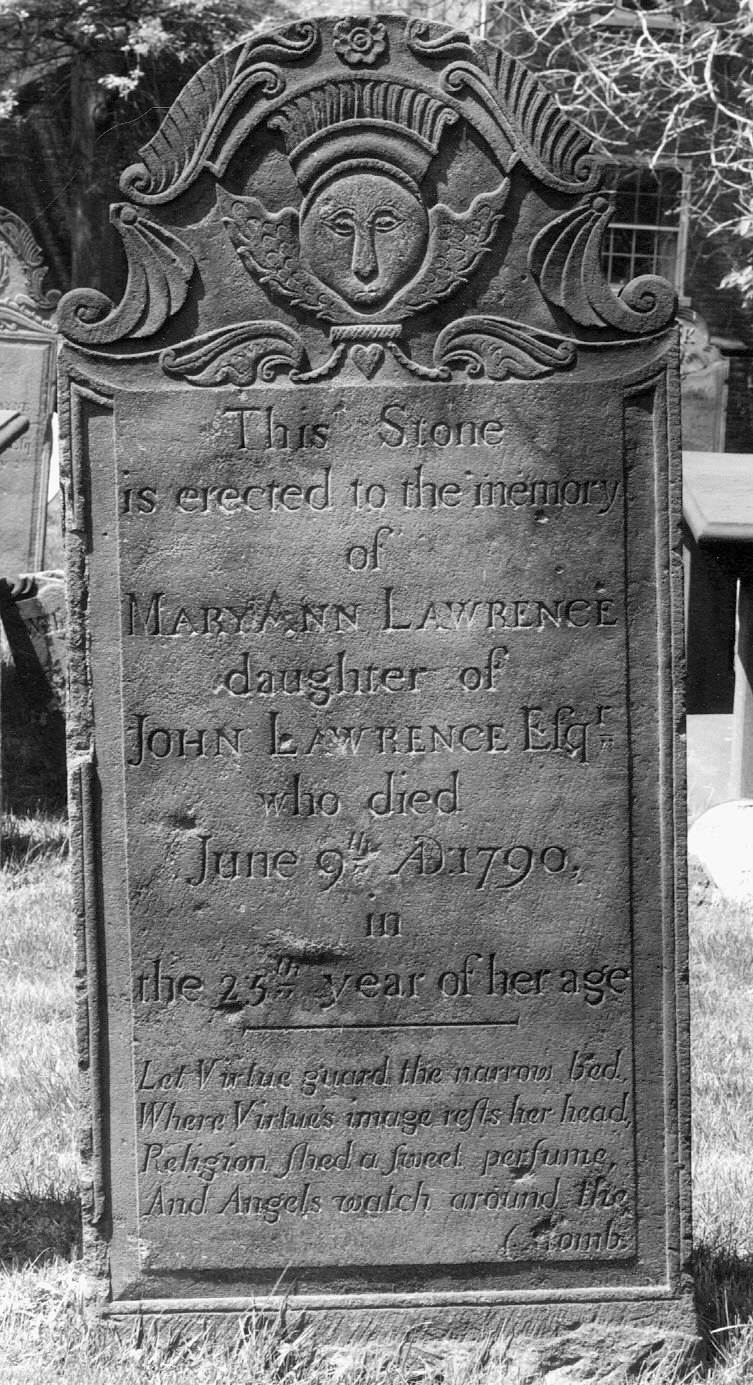 This Stone
is erected to the memory
of
MARY ANN LAWRENCE
daughter of
JOHN LAWRENCE Eſqr
who died
June 9th AD:1790,
in
the 25th year of her age
Let Virtue guard the narrow bed,
Where Virtue's image reſts her head,
Religion ſhed a ſweet perfume,
And Angels watch around the
Tomb.